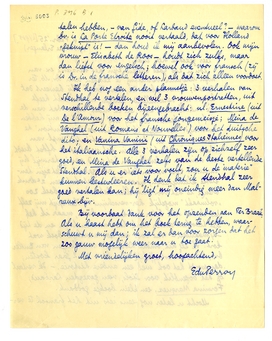 talen hebben, – van Gide of Larbaud eventueel? – waarom
Dr. is La Porte Etroite nooit vertaald, dat voor Hollens
geknipt is! – dan houd ik mij aanbevolen. Ook mijn
vrouw – Elisabeth de Roos – houdt zich ervoor, maar
dan liefst voor engelsch; hoewel ook voor fransch, (zij
is Dr. in de fransche letteren), als dat zich alleen voordoet.
Ik heb nog een ander plannetje: 3 verhalen van
Stendhal te vertalen en wel 3 vrouwenportretten, uit
verschillende boeken bijeengebracht: nl. Ernestine (uit
De l'Amour) voor het fransche jongemeisje; Mina de
Vanghel (uit Romans et Nouvelles) voor het duitsche
dito; en Vanina Vanini (uit Chroniques Italiennes) voor
het italiaansche. Alle 3 verhalen zijn op zichzelf zeer
goed, en Mina de Vanghel zelfs van de beste vertellende
Stendhal. Als u er iets voor voelt, zou u de uwe
kunnen bestudeeren. Ik denk dat ik Stendhal zeer
goed vertalen kan; hij ligt mij oneindig meer dan Mal-
raux bijv.
Bij voorbaat dank voor het opzenden aan Ter Braak.
Als u haast hebt om het boek terug te hebben, waar-
schuwt u mij dan; ik zal er dan voor zorgen dat het
zoo gauw mogelijk weer naar u toe gaat.
Met vriendelijken groet, hoogachtend,
EduPerron